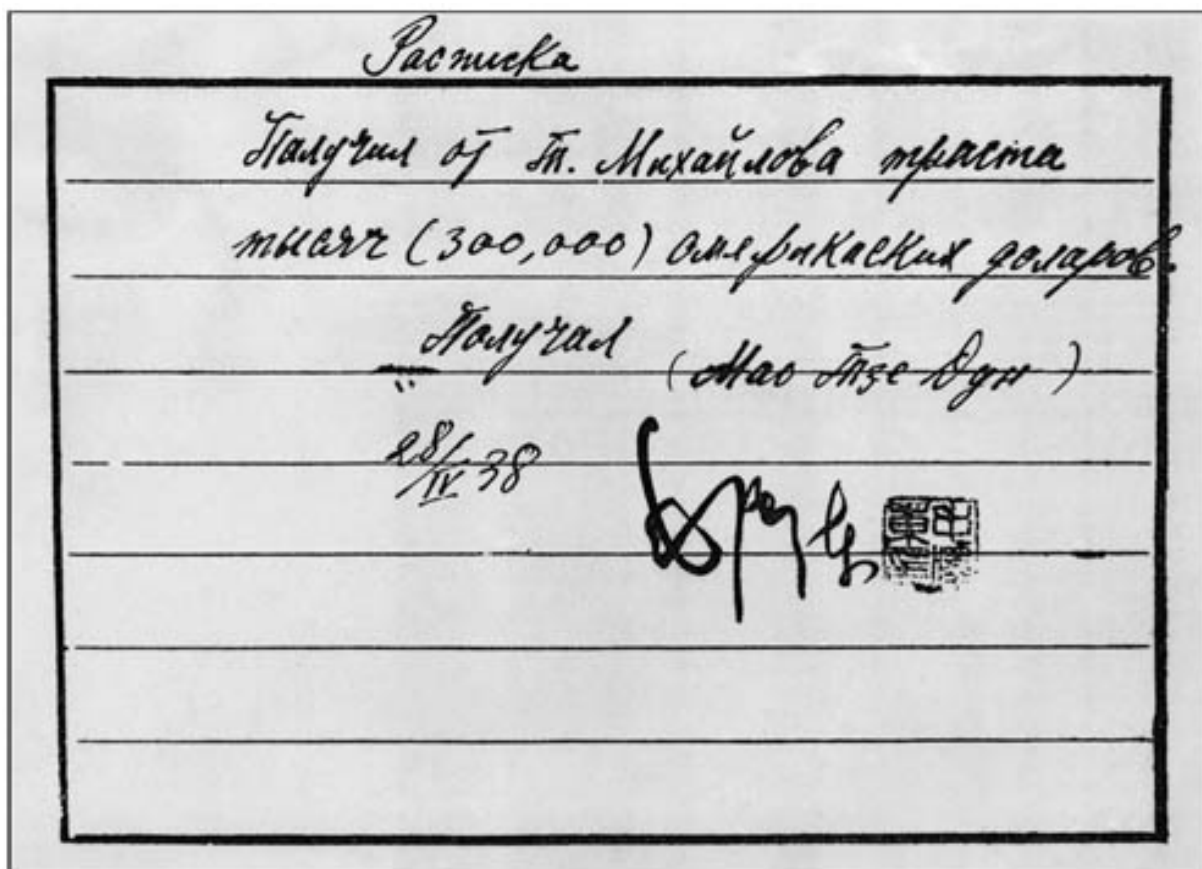 Расписка
Получил от т. Михайлова триста
тысяч (300,000) американских доларов.
Получал (Мао Тзе Дун)
28/IV 38